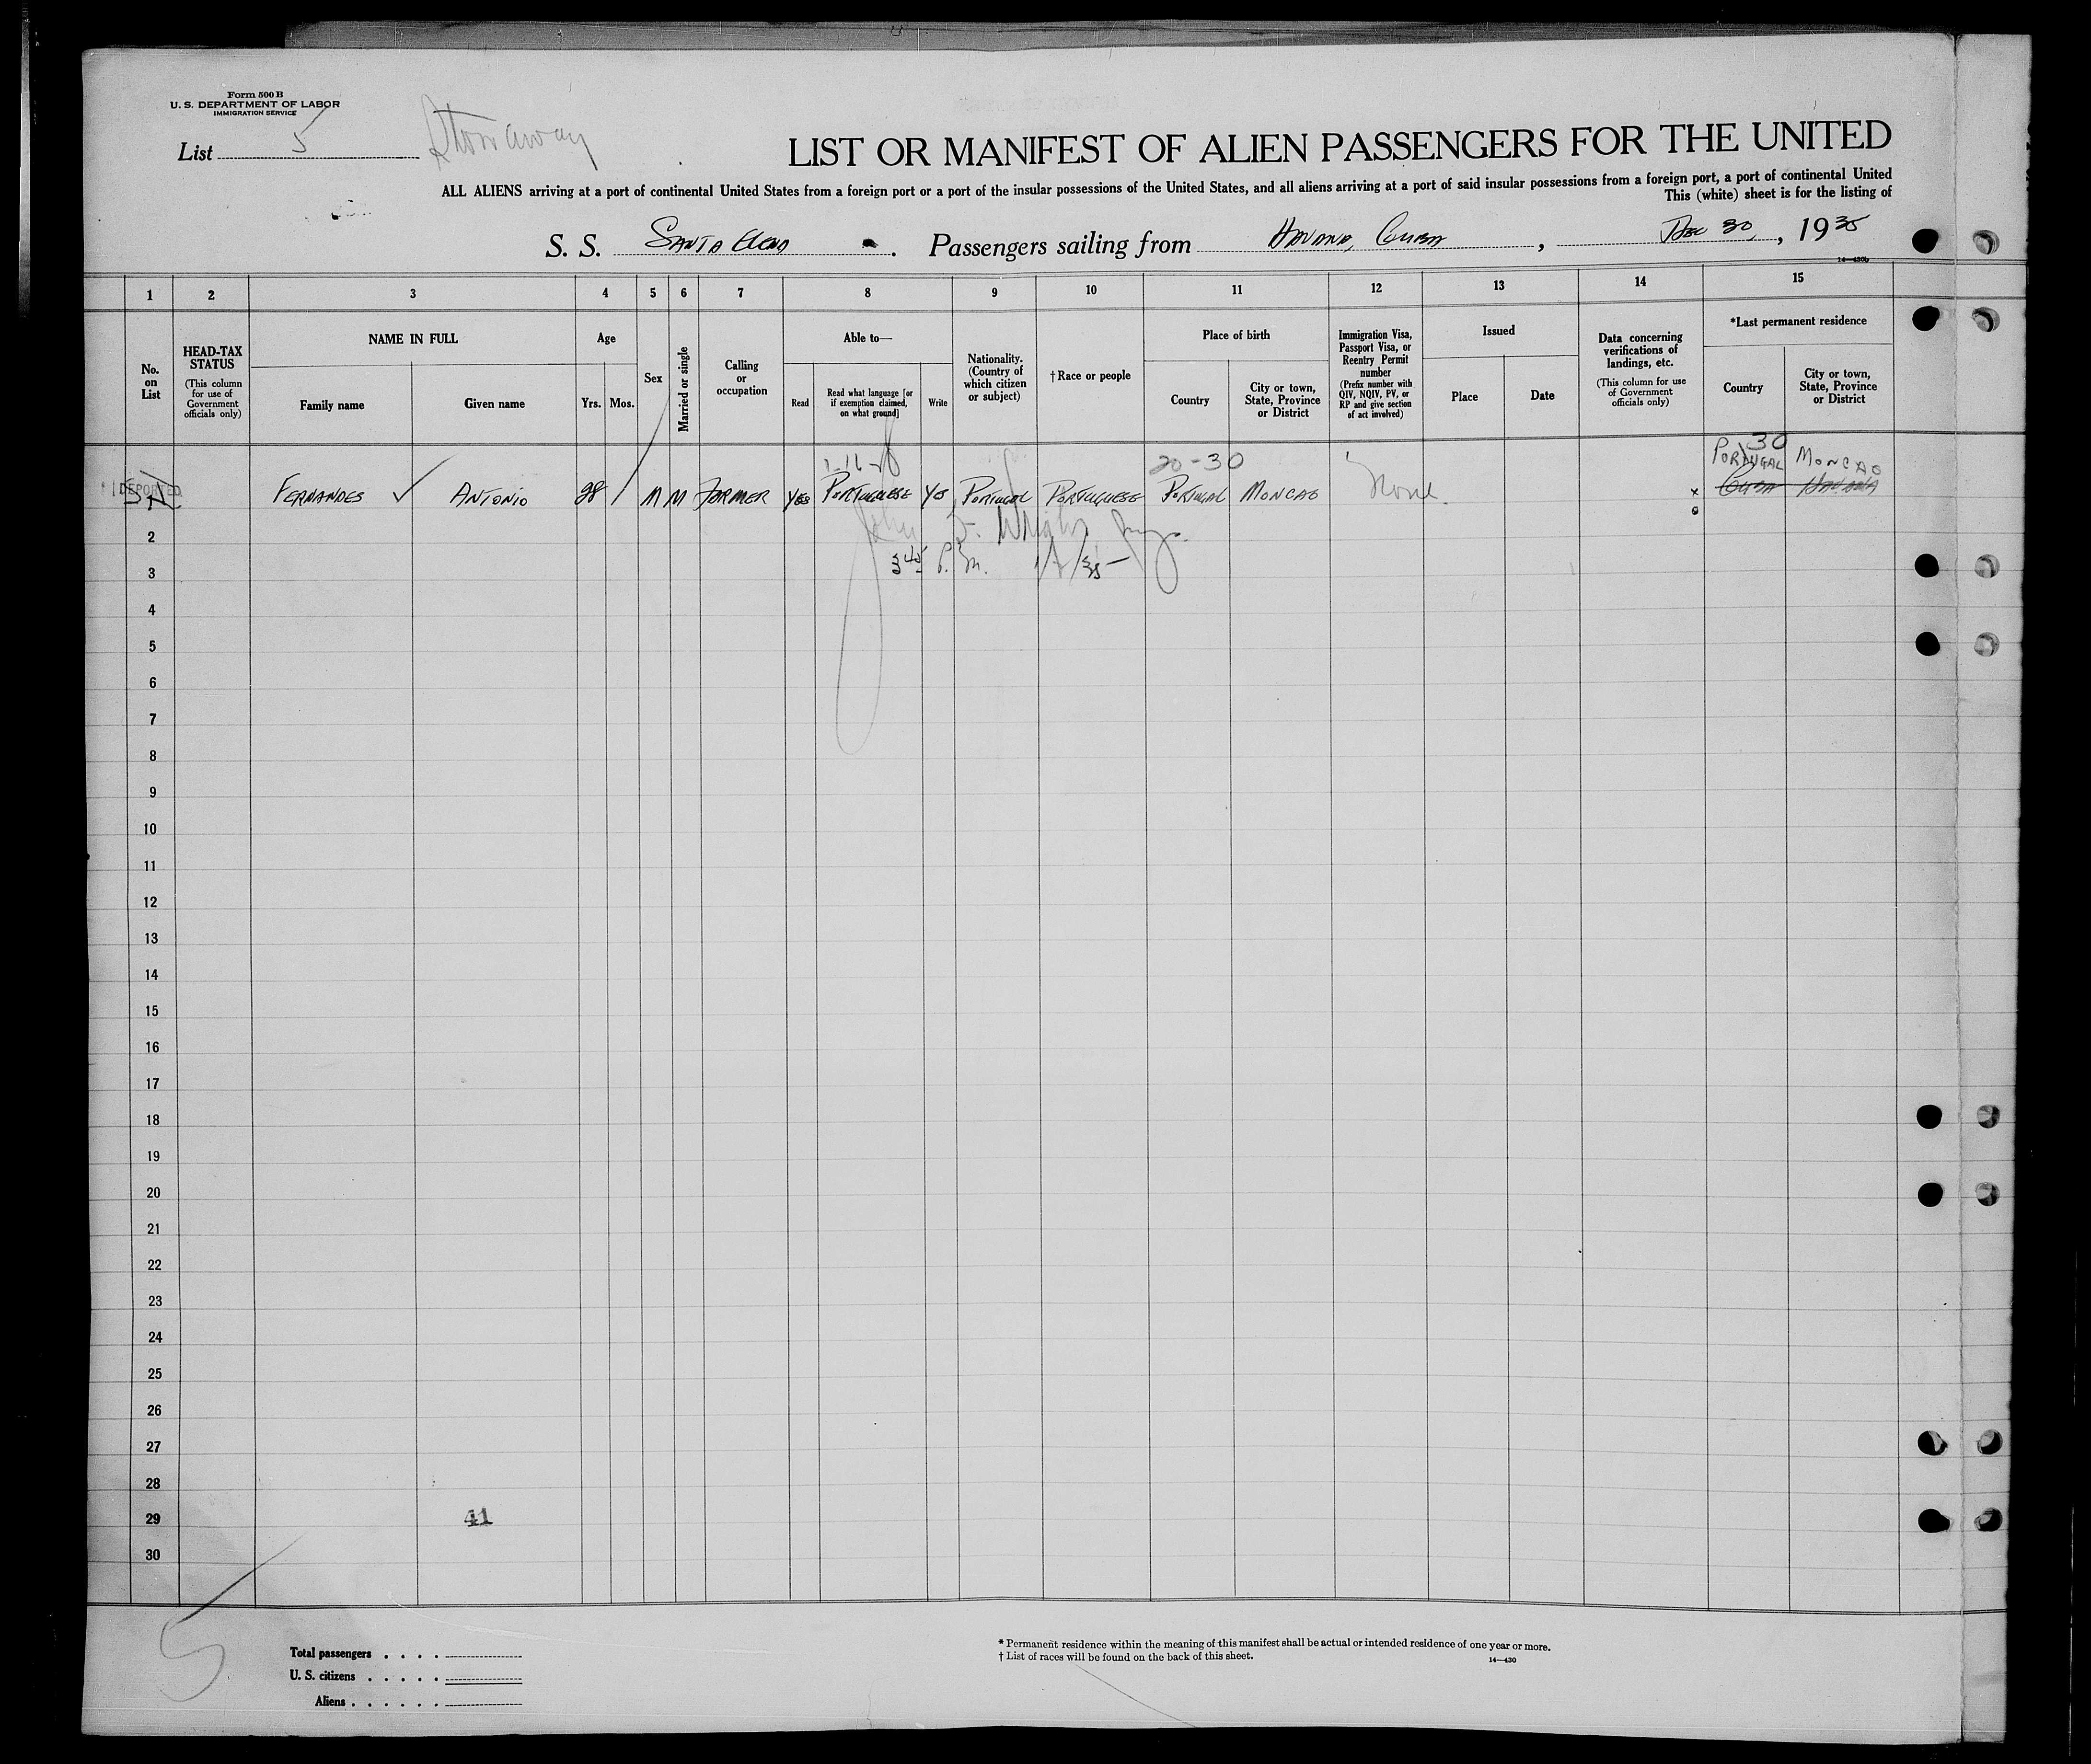 Form 500 B
U. S. DEPARTMENT OF LABOR
IMMIGRATION SERVICE
List 5 Stowaway
LIST OR MANIFEST OF ALIEN PASSENGERS FOR THE UNITED
ALL ALIENS arriving at a port of continental United States from a foreign port or a port of the insular possessions of the United States, and all aliens arriving at a port of said insular possessions from a foreign port, a port of continental United
This (white) sheet is for the listing of
S. S. SANTA ELENA. Passengers sailing from HAVANA, CUBA, DEC 30, 1935
14—430b
1 2 3 4 5 6 7 8 9 10 11 12 13 14 15
No. on List
HEAD-TAX STATUS
(This column for use of Government officials only)
NAME IN FULL
Family name
Given name
Age
Yrs. Mos.
Sex
Married or single
Calling or occupation
Able to—
Read
Read what language [or if exemption claimed, on what ground]
Write
Nationality. (Country of which citizen or subject)
†Race or people
Place of birth
Country
City or town, State, Province or District
Immigration Visa, Passport Visa, or Reentry Permit number
(Prefix number with QIV, NQIV, PV, or RP and give section of act involved)
Issued
Place
Date
Data concerning verifications of landings, etc.
(This column for use of Government officials only)
*Last permanent residence
Country
City or town, State, Province or District
20-30
30
PORTUGAL MONCAO
1 DEPORTED FERNANDES ✓ ANTONIO 28 M M FARMER YES PORTUGUESE YES PORTUGAL PORTUGUESE PORTUGAL MONCAO None x CUBA HAVANA
2 John Insp.
3 3 45 P.M.
4
5
6
7
8
9
10
11
12
13
14
15
16
17
18
19
20
21
22
23
24
25
26
27
28
29 41
30
5
Total passengers . . . .
U. S. citizens . . . . .
Aliens . . . . . .
* Permanent residence within the meaning of this manifest shall be actual or intended residence of one year or more.
† List of races will be found on the back of this sheet.
14—430